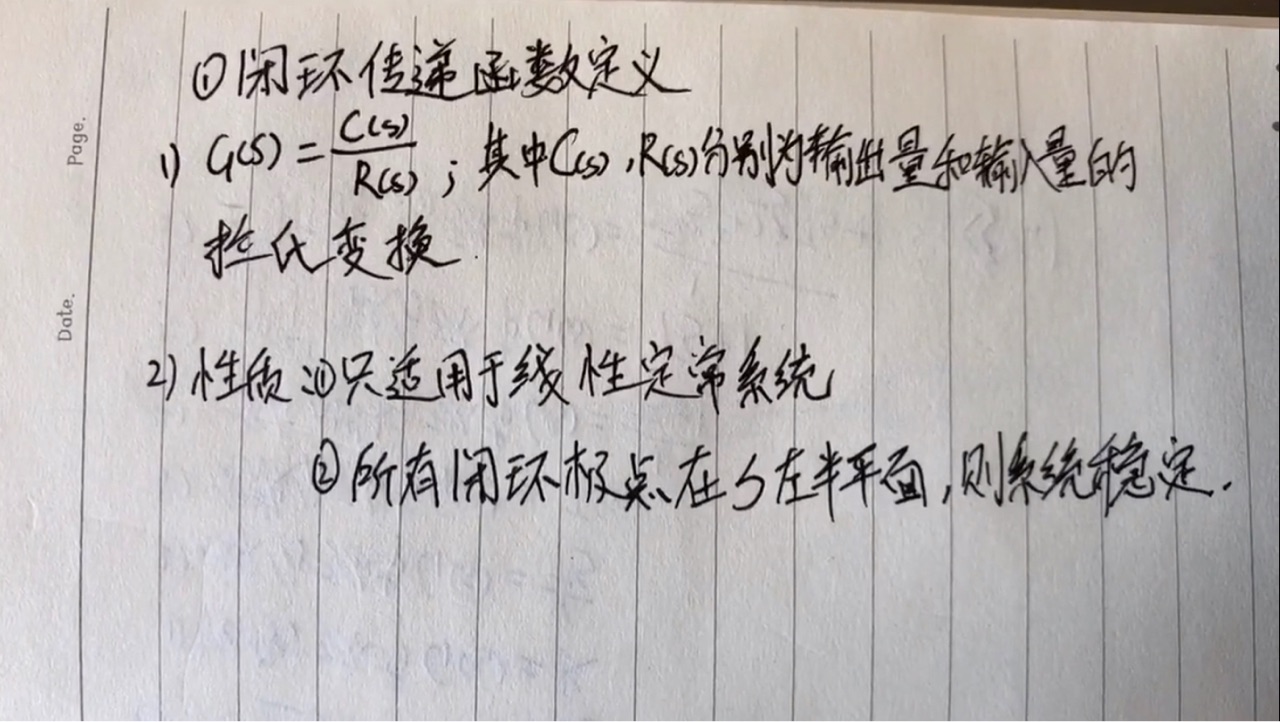 Page.
Date.
①闭环传递函数定义
1) G(s)=C(s)/R(s)；其中C(s),R(s)分别为输出量和输入量的
拉氏变换.
2) 性质:①只适用于线性定常系统
②所有闭环极点在s左半平面,则系统稳定.